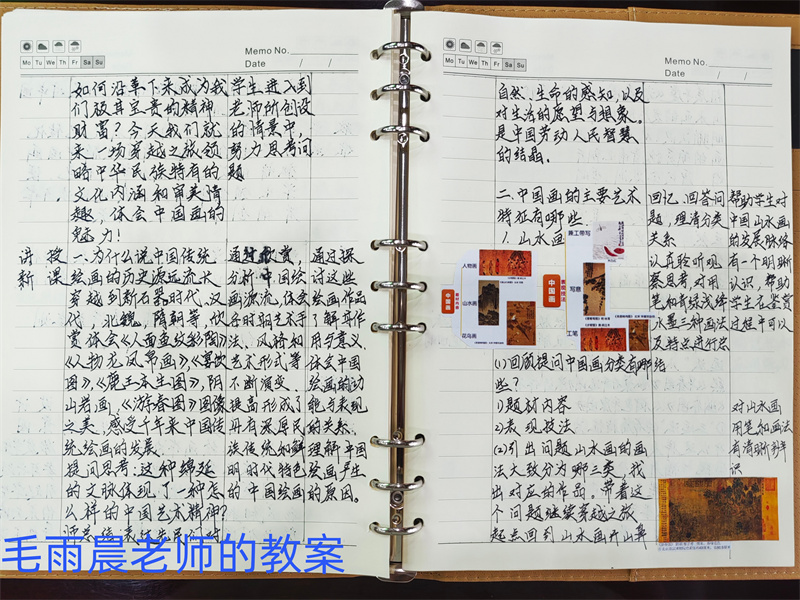 Memo No.
Mo Tu We Th Fr Sa Su
Date / /
如何沿革下来成为我
们极其宝贵的精神
财富？今天我们就
来一场穿越之旅领
略中华民族特有的
文化内涵和审美情
趣，体会中国画的
魅力！
学生进入到
老师所创设
的情景中，
努力思考问
题
讲授
新课
一.为什么说中国传统
绘画的历史源远流长
穿越到新石器时代、汉
代，北魏，隋朝等，欣
赏体会《人面鱼纹彩陶》
《人物龙凤帛画》、《宴饮
图》、《鹿王本生图》，阴
山岩画、《游春图》图像
之美，感受千年来中国传
统绘画的发展
提问思考：这种绵延
的文脉体现了一种怎
么样的中国艺术精神？
师总结：表达先民们对
通过欣赏，
分析中国绘
画源流，体会
不断演变、
提高形成了
具有深厚民
族传统和鲜
明时代特色
的中国绘画
通过探
讨这些
绘画作品
了解其作
用与意义
体会中国
绘画的功
能与表现
的关系.
理解中国
绘画产生
的原因。
Memo No.
Mo Tu We Th Fr Sa Su
Date / /
自然、生命的感知，以及
对生活的愿望与想象。
是中国劳动人民智慧
的结晶.
二.中国画的主要艺术
特征有哪些
1.山水画
人物画
山水画
花鸟画
中国画
兼工带写
写意
工笔
(1)回顾提问中国画分类有哪
些？
1)题材内容
2)表现技法
(2)引出问题山水画的画
法大致分为哪三类，找
出对应的作品。带着这
个问题继续穿越之旅
回忆、回答问
题，理清分类
关系
认真聆听观
察思考，对用
笔和青绿浅绛
水墨三种画法
及特点进行总
结
帮助学生对
中国山水画
的发展脉络
有一个明晰
认识，帮助
学生在鉴赏
过程中可以
对山水画
用笔和画法
有清晰认
识
毛雨晨老师的教案